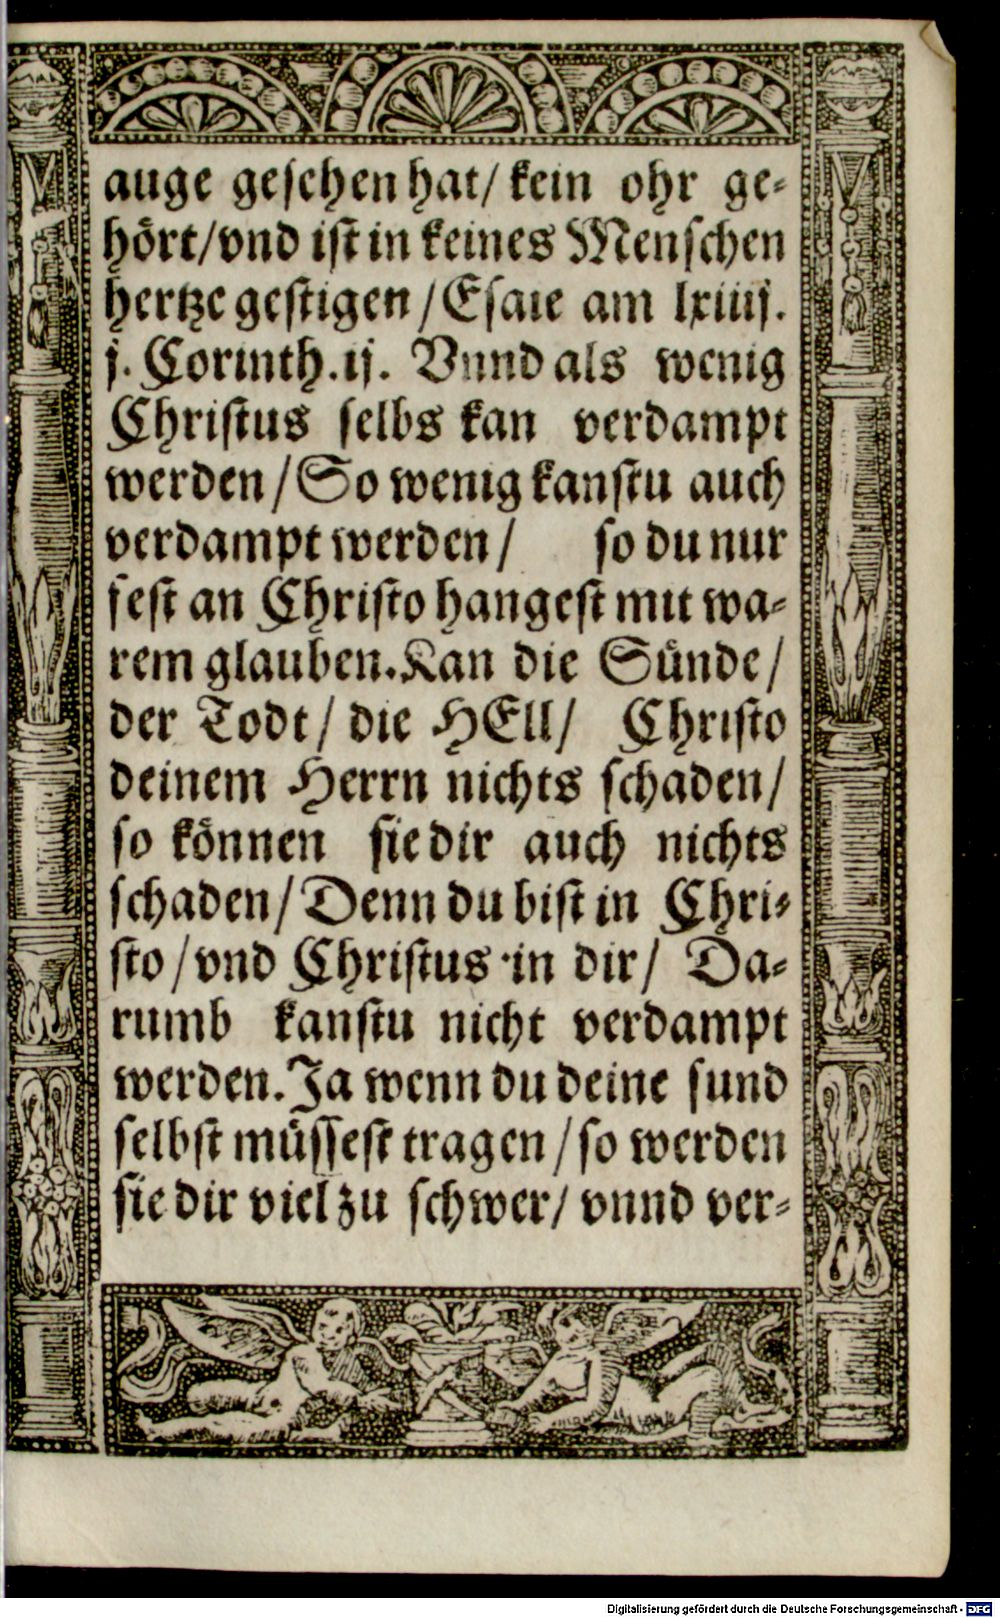 auge gesehen hat/ kein ohr ge⸗
hört/vnd ist in keines Menschen
hertze gestigen/Esaie am lxiiij.
j. Corinth.ij. Vnnd als wenig
Christus selbs kan verdampt
werden/So wenig kanstu auch
verdampt werden/ so du nur
fest an Christo hangest mit wa⸗
rem glauben.Kan die Sünde/
der Todt/ die HEll/ Christo
deinem Herrn nichts schaden/
so können sie dir auch nichts
schaden/Denn du bist in Chri⸗
sto/vnd Christus in dir/ Da⸗
rumb kanstu nicht verdampt
werden.Ja wenn du deine sund
selbst müssest tragen/so werden
sie dir viel zu schwer/ vnnd ver⸗
Digitalisierung gefördert durch die Deutsche Forschungsgemeinschaft - DFG